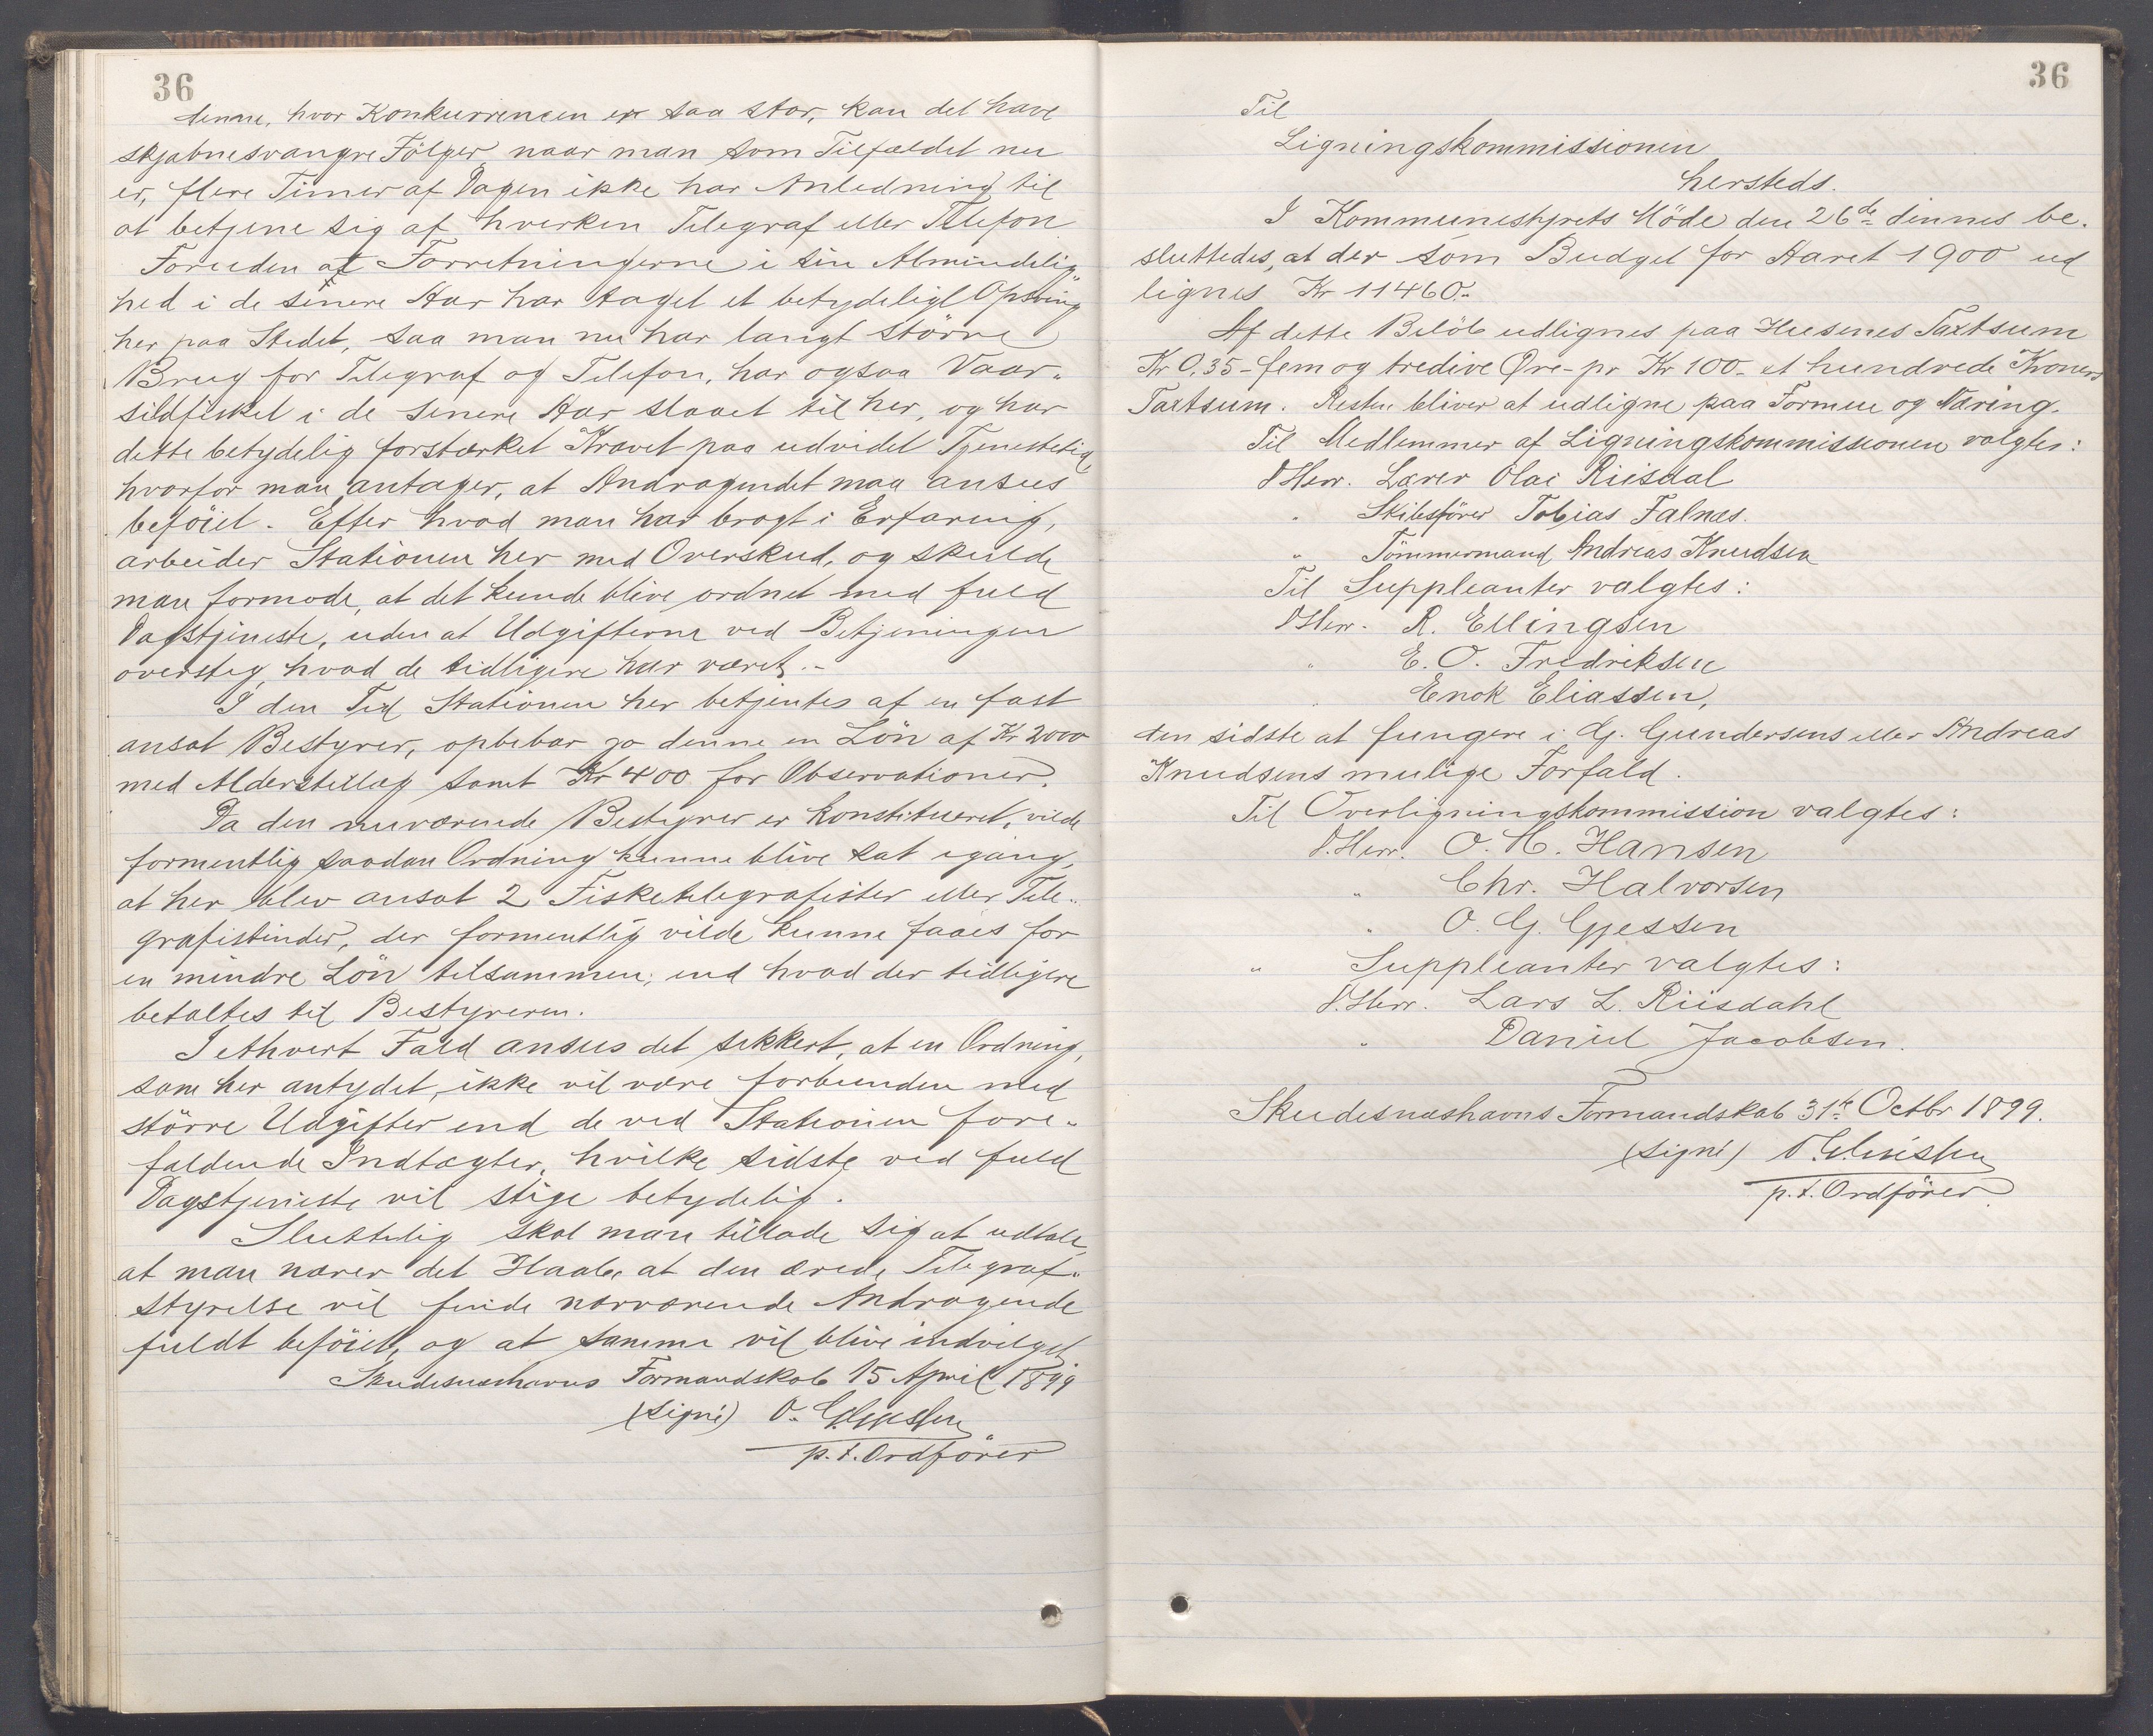 36
denne, hvor Konkurrencen er saa stor, kan det have
skjæbnesvangre Fölger, naar man som Tilfældet nu
er, flere Timer af Dagen ikke har Anledning til
at betjene sig af hverken Telegraf eller Telefon
Foruden at Forretningerne i sin Almindelig„
hed i de senere Aar har taget et betydeligt Opsving
her paa Stedet, saa man nu har langt större
Brug for Telegraf og Telefon, har ogsaa Vaar„
sildfisket i de senere Aar slaaet til her, og har
dette betydelig forstærket Kravet paa udvidet Tjenestetid,
hvorfor man antager, at Andragendet maa ansees
beföiet. Efter hvad man har bragt i Erfaring,
arbeider Stationen her med Overskud, og skulde
man formode, at det kunde blive ordnet med fuld
Dagstjeneste, uden at Udgifterne ved Betjeningen
oversteg hvad de tidligere har været.-
I den Tid Stationen her betjentes af en fast
ansat Bestyrer, oppebar jo denne en Lön af Kr 2000
med Alderstillæg samt Kr 400 for Observationer.
Da den nuværende Bestyrer er konstitueret, vilde
formentlig saadan Ordning kunne blive sat igang,
at her blev ansat 2 Fisketelegrafister eller Tele„
grafistinder, der formentlig vilde kunne faaes for
en mindre Lön tilsammen, end hvad der tidligere
betaltes til Bestyreren.
I ethvert Fald ansees det sikkert, at en Ordning,
som her antydet, ikke vil være forbunden med
större Udgifter end de ved Stationen fore„
faldende Indtægter, hvilke sidste ved fuld
Dagstjeneste vil stige betydelig.
Sluttelig skal man tillade sig at udtale,
at man nærer det Haab, at den ærede Telegraf„
styrelse vil finde nærværende Andragende
fuldt beföiet, og at samme vil blive indvilget
Skudesneshavns Formandskab 15 April 1899
(signé) O.
p.t. Ordförer
36
Til
Ligningskommissionen
hersteds.
I Kommunestyrets Möde den 26de dennes be„
sluttedes, at der som Budget for Aaret 1900 ud
lignes Kr 11460.-
Af dette Belöb udlignes paa Husenes Taxtsum
Kr 0,35 - fem og tredive Øre - pr Kr 100 - et hundrede Kroners
Taxtsum. Resten bliver at udligne paa Formue og Næring.
Til Medlemmer af Ligningskommissionen valgtes:
DHerr. Lærer Olai Riisdal
" Skibsförer Tobias Falnæs.
" Tömmermand Andreas Knudsen
Til Suppleanter valgtes:
DHerr. R. Ellingsen
" E. O. Fredriksen
" Enok Eliassen,
den sidste at fungere i G. Gundersens eller Andreas
Knudsens mulige Forfald.
Til Overligningskommission valgtes:
D.Herr. O. H. Hansen
" Chr. Halvorsen
" O. G. Gjessen
" Suppleanter valgtes:
D.Herr. Lars L. Riisdahl
" Daniel Jacobsen.
Skudesneshavns Formandskab 31te Octbr 1899.
(signé)
p.t. Ordförer.